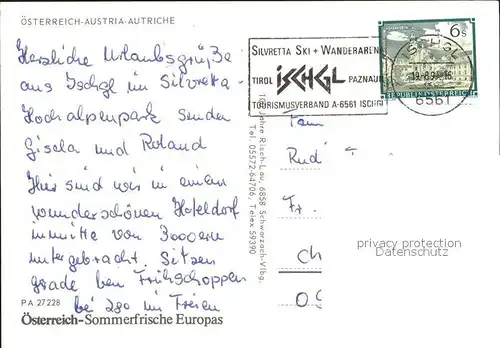 ÖSTERREICH-AUSTRIA-AUTRICHE
Herzliche Urlaubsgrüße
aus Ischgl im Silvretta-
Hochalpenpark senden
Gisela und Roland
Hier sind wir in einem
wunderschönen Hoteldorf
inmitte von 3000ern
untergebracht. Sitzen
grade beim Frühschoppen
bei 28° im Freien
PA 27228
Österreich-Sommerfrische Europas
100 Jahre Risch-Lau, 6858 Schwarzach-Vlbg.
Tel. 05572-64706, Telex 59390
SILVRETTA SKI + WANDERARENA
TIROL ISCHGL PAZNAUN
TOURISMUSVERBAND A-6561 ISCHGL
6S
REPUBLIK ÖSTERREICH
ISCHGL
6561
Fam
Rudi
Fr.
Ch
09
privacy protection
Datenschutz